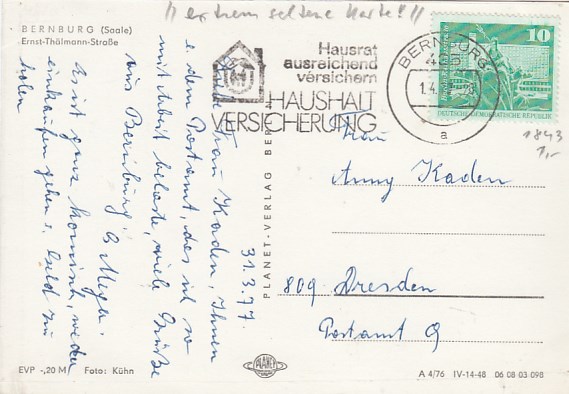 // extrem seltene Karte! //
BERNBURG (Saale)
Ernst-Thälmann-Straße
Hausrat
ausreichend
versichern
HAUSHALT
VERSICHERUNG
BERNBURG
1.4.
a
10
DEUTSCHE DEMOKRATISCHE REPUBLIK
1843
1,-
31.3.77.
Frau Kaden, Ihnen
u. dem Postamt, das ist so
mit Arbeit belastet, viele Grüße
aus Bernburg!
G. Meyer.
Es ist ganz komisch, wieder
einkaufen gehen u. Geld zu
holen
Frau
Anny Kaden
809 Dresden
Postamt 9
PLANET-VERLAG BERLIN
PLANET
EVP -,20 M Foto: Kühn
A 4/76 IV-14-48 06 08 03 098